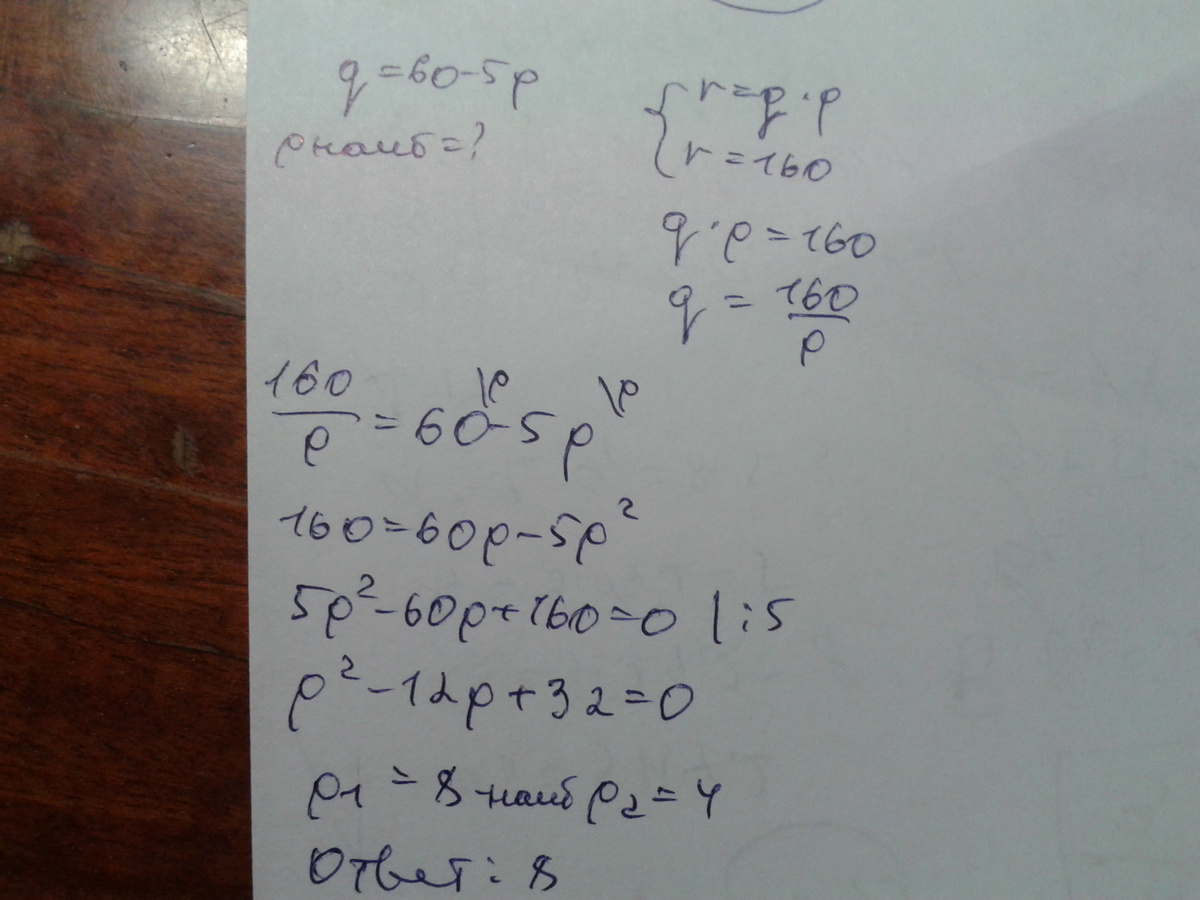 q = 60 - 5p
pнаиб = ?
{ r = q · p
r = 160
q · p = 160
q = 160/p
160/p = 60\p - 5p\p
160 = 60p - 5p²
5p² - 60p + 160 = 0 | : 5
p² - 12p + 32 = 0
p₁ = 8 - наиб p₂ = 4
Ответ: 8